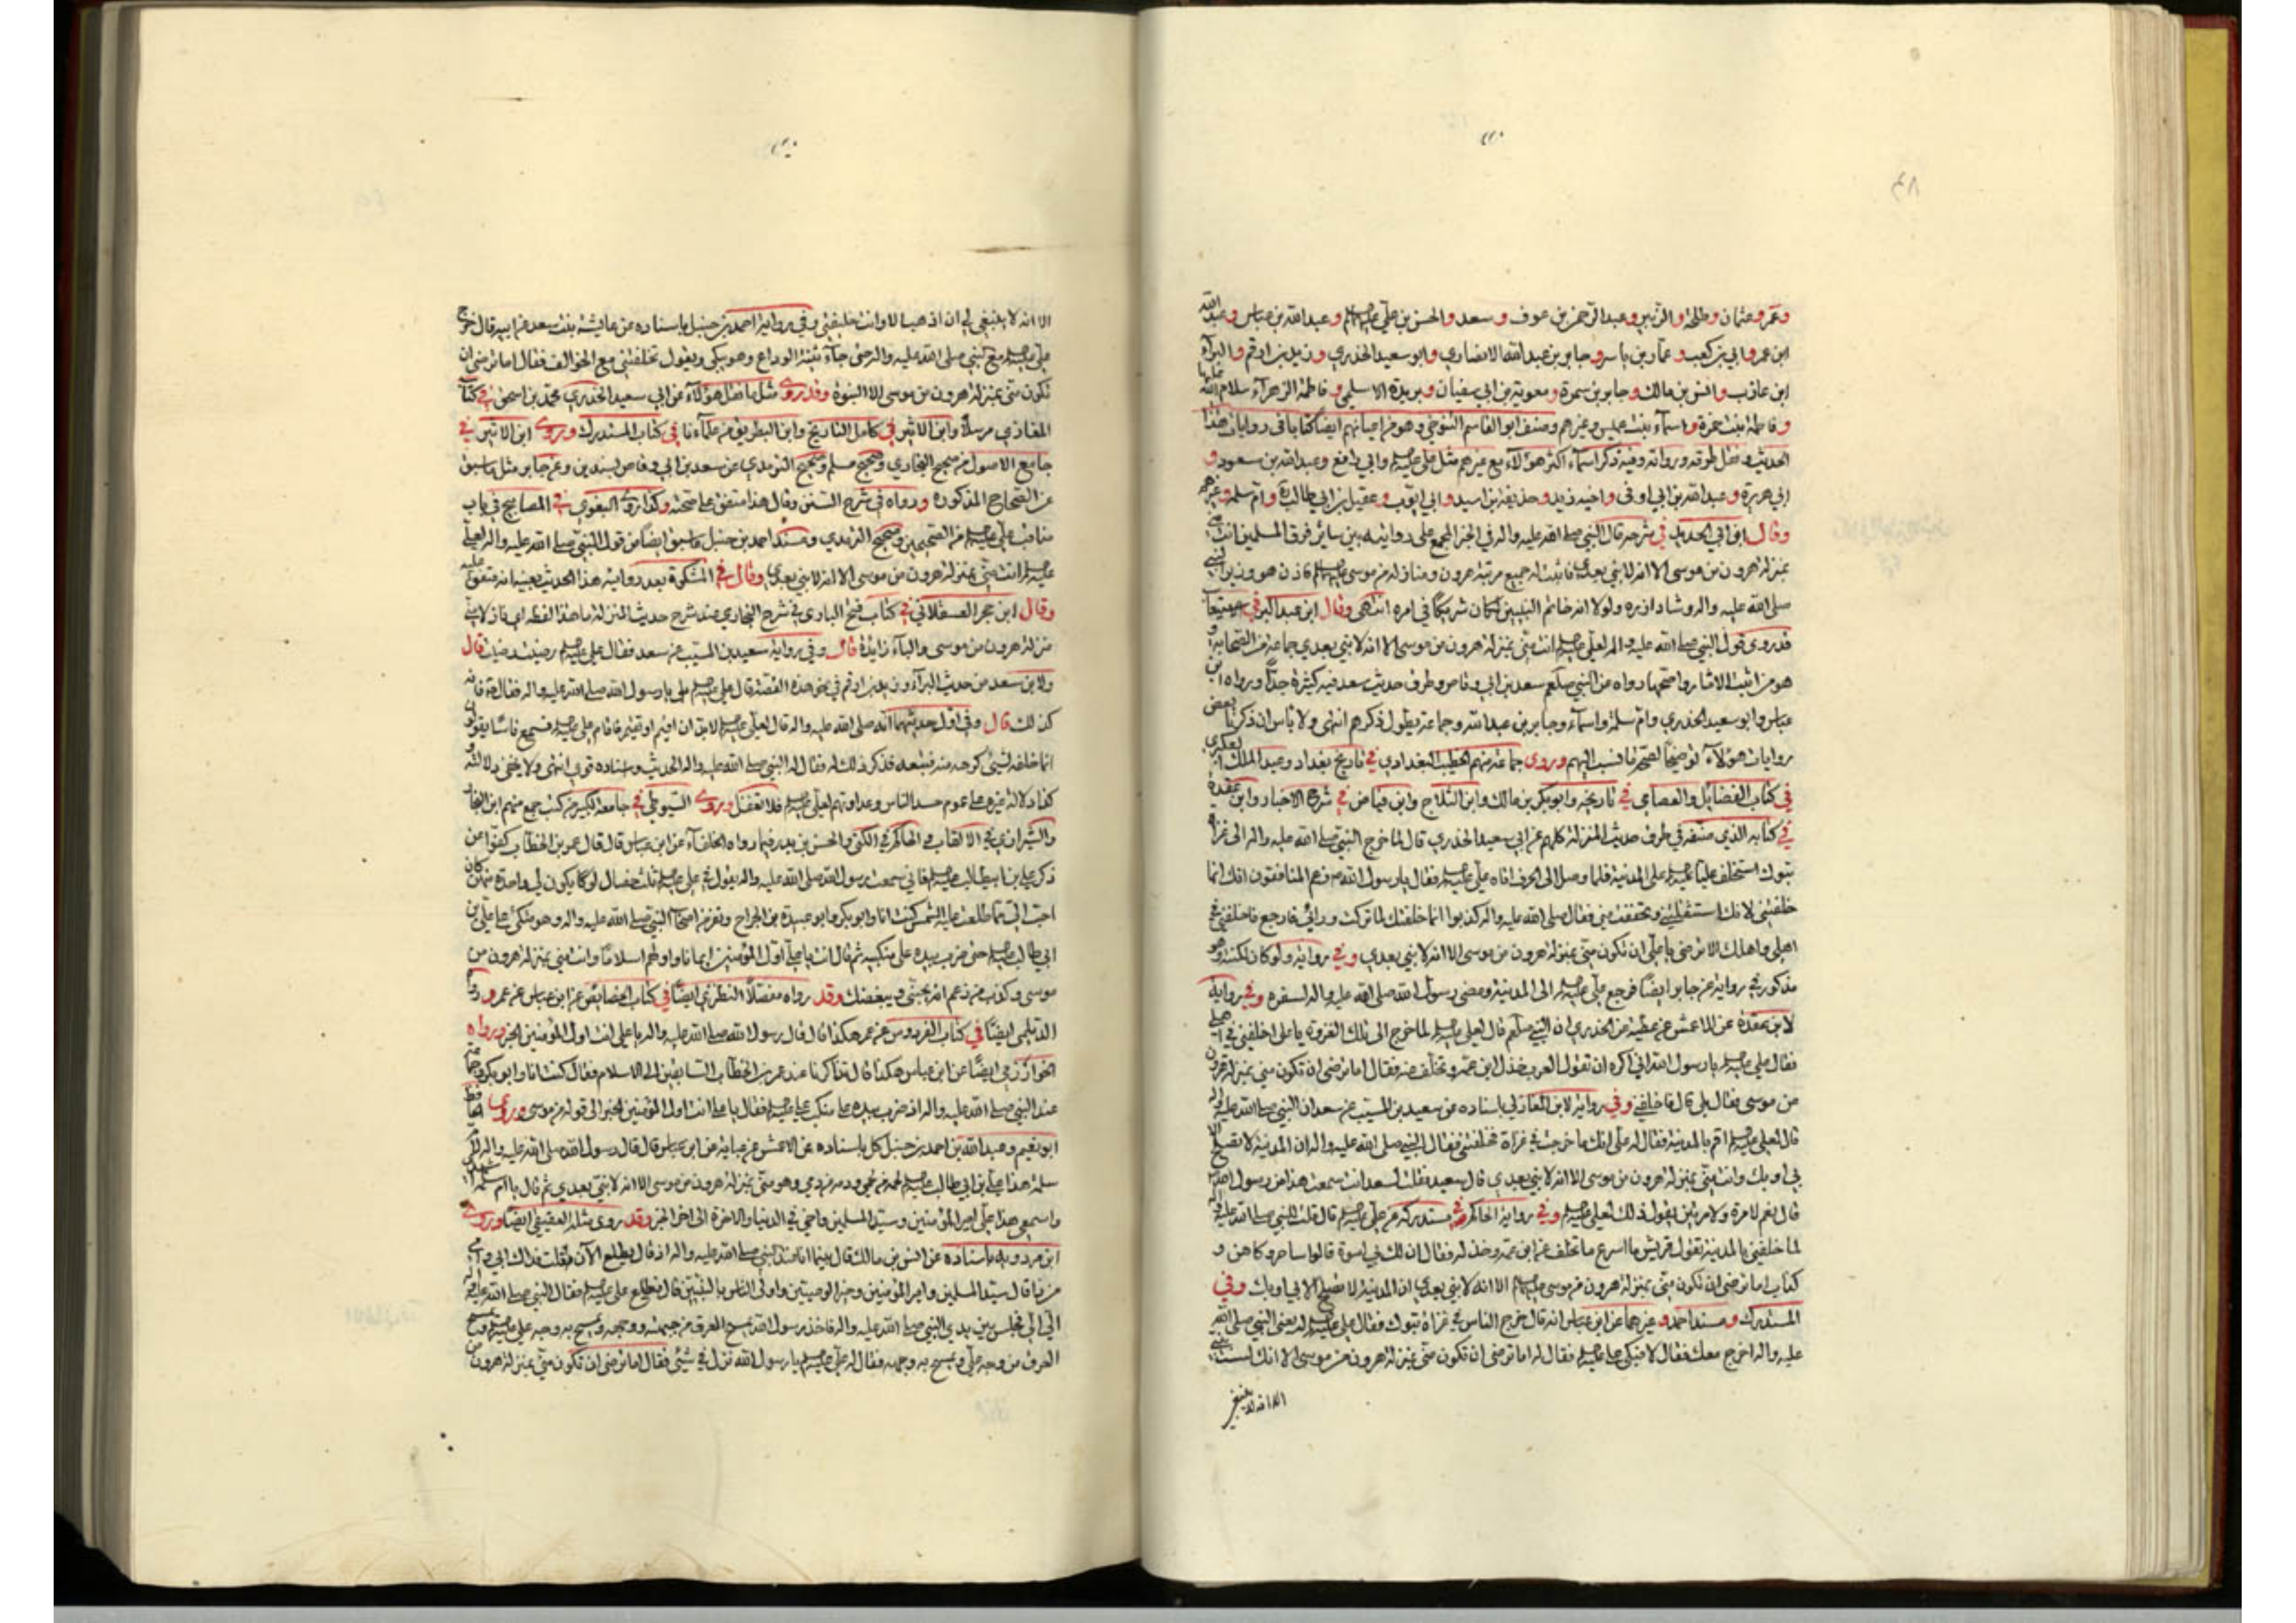 وعمر وعثمان وطلحة والزبير وعبد الرحمن بن عوف وسعد والحسن بن علي عليهما السلام وعبد الله بن عباس وعبد الله
ابن عمر وابي بن كعب وعمار بن ياسر وجابر بن عبد الله الانصاري وابو سعيد الخدري وزيد بن ارقم والبراء
ابن عازب وانس بن مالك وجابر بن سمرة ومعوية بن ابي سفيان وبريدة الاسلمي وفاطمة الزهراء سلام الله عليها
وفاطمة بنت حمزة واسماء بنت عميس وغيرهم وصنف ابو القاسم التنوخي وهو من اعيانهم ايضا كتابا في روايات هذا
الحديث ونقل طرقه ورواته وفيه ذكر اسماء اكثر هؤلاء مع غيرهم مثل علي عليه السلام وابي رافع وعبد الله بن مسعود و
ابي هريرة وعبد الله بن ابي اوفى واخيه زيد وحذيفة بن اسيد وابي ايوب وعقيل بن ابي طالب وام سلمة وغيرهم
وقال ابن ابي الحديد في شرحه قال النبي صلى الله عليه واله في الخبر المجمع على روايته بين سائر فرق المسلمين انت مني
بمنزلة هرون من موسى الا انه لا نبي بعدي فاثبت له جميع مرتبة هرون ومنازله من موسى عليه السلام فاذن هو وزير النبي
صلى الله عليه واله وشاد ازره ولولا انه خاتم النبيين لكان شريكا في امره انتهى وقال ابن عبد البر في
قد روى قول النبي صلى الله عليه واله لعلي عليه السلام انت مني بمنزلة هرون من موسى الا انه لا نبي بعدي جماعة من الصحابة و
هو من اثبت الاثار واصحها رواه عن النبي صلعم سعد بن ابي وقاص وطرق حديث سعد فيه كثيرة جدا ورواه ابن
عباس وابو سعيد الخدري وام سلمة واسماء وجابر بن عبد الله وجماعة يطول ذكرهم انتهى ولا باس ان ذكرنا بعض
روايات هؤلاء توضيحا لصحة ما نسب اليهم وروى جماعة منهم الخطيب البغدادي في تاريخ بغداد وعبد الملك العكبري
في كتاب الفضايل والعصامي في تاريخه وابو بكر بن مالك وابن الثلاج وابن فياض في شرح الاخبار وابن عقدة
في كتابه الذي صنفه في طرق حديث المنزلة كلهم عن ابي سعيد الخدري قال لما خرج النبي صلى الله عليه واله الى غزاة
تبوك استخلف عليا عليه السلام على المدينة فلما وصل الى الجرف اتاه علي عليه السلام فقال يا رسول الله زعم المنافقون انك انما
خلفتني لانك استثقلتني وتخففت مني فقال صلى الله عليه واله كذبوا انما خلفتك لما تركت ورائي فارجع فاخلفني في
اهلي واهلك الا ترضى يا علي ان تكون مني بمنزلة هرون من موسى الا انه لا نبي بعدي وفي رواية ولو كان لكنته وهو
مذكور في رواية عن جابر ايضا فرجع علي عليه السلام الى المدينة ومضى رسول الله صلى الله عليه واله لسفره وفي رواية
لابن عقدة عن الاعمش عن عطية عن الخدري ان النبي صلعم قال لعلي عليه السلام لما خرج الى تلك الغزوة يا علي اخلفني في اهلي
فقال علي عليه السلام يا رسول الله اني اكره ان تقول العرب خذل ابن عمه وتخلف عنه فقال اما ترضى ان تكون مني بمنزلة هرون
من موسى فقال بلى قال فاخلفني وفي رواية لابن المغازلي باسناده عن سعيد بن المسيب عن سعد ان النبي صلى الله عليه واله
قال لعلي عليه السلام اقم بالمدينة فقال له علي انك ما خرجت في غزاة فخلفتني فقال النبي صلى الله عليه واله ان المدينة لا تصلح الا
بي او بك وانت مني بمنزلة هرون من موسى الا انه لا نبي بعدي قال سعيد فقلت لسعد انت سمعت هذا من رسول الله
قال نعم لا مرة ولا مرتين يقول ذلك لعلي عليه السلام وفي رواية الحاكم في مستدركه عن علي عليه السلام قال قلت للنبي صلى الله عليه واله
لما خلفني بالمدينة تقول قريش ما اسرع ما تخلف عن ابن عمه وخذله فقال ان لك في اسوة قالوا ساحر وكاهن و
كذاب اما ترضى ان تكون مني بمنزلة هرون من موسى عليهما السلام الا انه لا نبي بعدي ان المدينة لا تصلح الا بي او بك وفي
المستدرك ومسند احمد وغيرهما عن ابن عباس انه قال خرج الناس في غزاة تبوك فقال علي عليه السلام له يعني النبي صلى الله
عليه واله اخرج معك فقال لا فبكى علي عليه السلام فقال له اما ترضى ان تكون مني بمنزلة هرون من موسى الا انك لست بنبي
الا انه لا ينبغي
الا انه لا ينبغي لي ان اذهب الا وانت خليفتي وفي رواية احمد بن حنبل باسناده عن عايشة بنت سعد عن ابيه قال خرج
علي عليه السلام مع النبي صلى الله عليه واله حتى جاء ثنية الوداع وهو يبكي ويقول تخلفني مع الخوالف فقال اما ترضى ان
تكون مني بمنزلة هرون من موسى الا النبوة وقد روى مثل ما نقل هؤلاء عن ابي سعيد الخدري محمد بن اسحق في كتاب
المغازي مرسلا وابن الاثير في كامل التاريخ وابن البطريق من علمائنا في كتاب المستدرك وروى ابن الاثير في
جامع الاصول من صحيح البخاري وصحيح مسلم وصحيح الترمذي عن سعد بن ابي وقاص بسندين وعن جابر مثل ما سبق
عن الصحاح المذكورة ورواه في شرح السنن وقال هذا متفق على صحته وكذا روى البغوي في المصابيح في باب
مناقب علي عليه السلام من الصحيحين وصحيح الترمذي ومسند احمد بن حنبل ما سبق ايضا من قول النبي صلى الله عليه واله لعلي
عليه السلام انت مني بمنزلة هرون من موسى الا انه لا نبي بعدي وقال في المشكوة بعد رواية هذا الحديث بعينه انه متفق عليه
وقال ابن حجر العسقلاني في كتاب فتح الباري في شرح البخاري عند شرح حديث المنزلة ما هذا لفظه اي نازلا مني
منزلة هرون من موسى والباء زايدة قال وفي رواية سعيد بن المسيب عن سعد فقال علي عليه السلام رضيت رضيت قال
ولابن سعد من حديث البراء وزيد بن ارقم في نحو هذه القصة قال علي عليه السلام بلى يا رسول الله صلى الله عليه واله قال فانه
كذلك قال وفي اول حديثهما انه صلى الله عليه واله قال لعلي عليه السلام لا بد ان اقيم او تقيم فاقام علي عليه السلام فسمع ناسا يقولون
انما خلفه لشيء كرهه منه فتبعه فذكر ذلك له فقال له النبي صلى الله عليه واله الحديث واسناده قوي انتهى ولا يخفى دلالته
كذا دلالة غيره على عموم حسد الناس وعداوتهم لعلي عليه السلام فلا تغفل وروى السيوطي في جامعه الكبير من كتب جمع منهم ابن النجار
والشيرازي في الالقاب والحاكم في الكنى والحسن بن بدر فيما رواه الخلفاء عن ابن عباس قال قال عمر بن الخطاب كفوا عن
ذكر علي بن ابيطالب عليه السلام فاني سمعت رسول الله صلى الله عليه واله يقول في علي عليه السلام ثلث خصال لو كان يكون لي واحدة منهن كان
احب الي مما طلعت عليه الشمس كنت انا وابو بكر وابو عبيدة بن الجراح ونفر من اصحاب النبي صلى الله عليه واله وهو متكئ على علي بن
ابي طالب عليه السلام حتى ضرب بيده على منكبيه ثم قال انت يا علي اول المؤمنين ايمانا واولهم اسلاما وانت مني بمنزلة هرون من
موسى وكذب من زعم انه يحبني ويبغضك وقد رواه مفصلا النطنزي ايضا في كتاب الخصايص عن ابن عباس عن عمر ورواه
الديلمي ايضا في كتاب الفردوس عن عمر هكذا قال قال رسول الله صلى الله عليه واله يا علي انت اول المؤمنين الخبر ورواه
الخوارزمي ايضا عن ابن عباس هكذا قال تذاكرنا عند عمر بن الخطاب السابقين الى الاسلام فقال كنت انا وابو بكر وجماعة
عند النبي صلى الله عليه واله اذ ضرب بيده على منكب علي عليه السلام فقال يا علي انت اول المؤمنين الخبر الى قوله من موسى وروى الحافظ
ابو نعيم وعبد الله بن احمد بن حنبل كل باسناده عن الاعمش عن عباية عن ابن عباس قال قال رسول الله صلى الله عليه واله لام
سلمة هذا علي بن ابي طالب عليه السلام لحمه من لحمي ودمه من دمي وهو مني بمنزلة هرون من موسى الا انه لا نبي بعدي ثم قال يا ام سلمة اشهدي
واسمعي هذا علي امير المؤمنين وسيد المسلمين واخي في الدنيا والاخرة الى اخر الخبر وقد روى مثله العقيقي ايضا وروى
ابن مردويه باسناده عن انس بن مالك قال بينما انا عند النبي صلى الله عليه واله اذ قال يطلع الآن قلت فداك ابي وامي
من ذا قال سيد المسلمين وامير المؤمنين وخير الوصيين واولى الناس بالنبيين قال فطلع علي عليه السلام فقال النبي صلى الله عليه واله
الي الي فجلس بين يدي النبي صلى الله عليه واله فاخذ رسول الله يمسح العرق من جبهته ووجهه ويمسح به وجه علي عليه السلام ويمسح
العرق من وجه علي ويمسح به وجهه فقال له علي عليه السلام يا رسول الله نزل في شيء فقال اما ترضى ان تكون مني بمنزلة هرون من